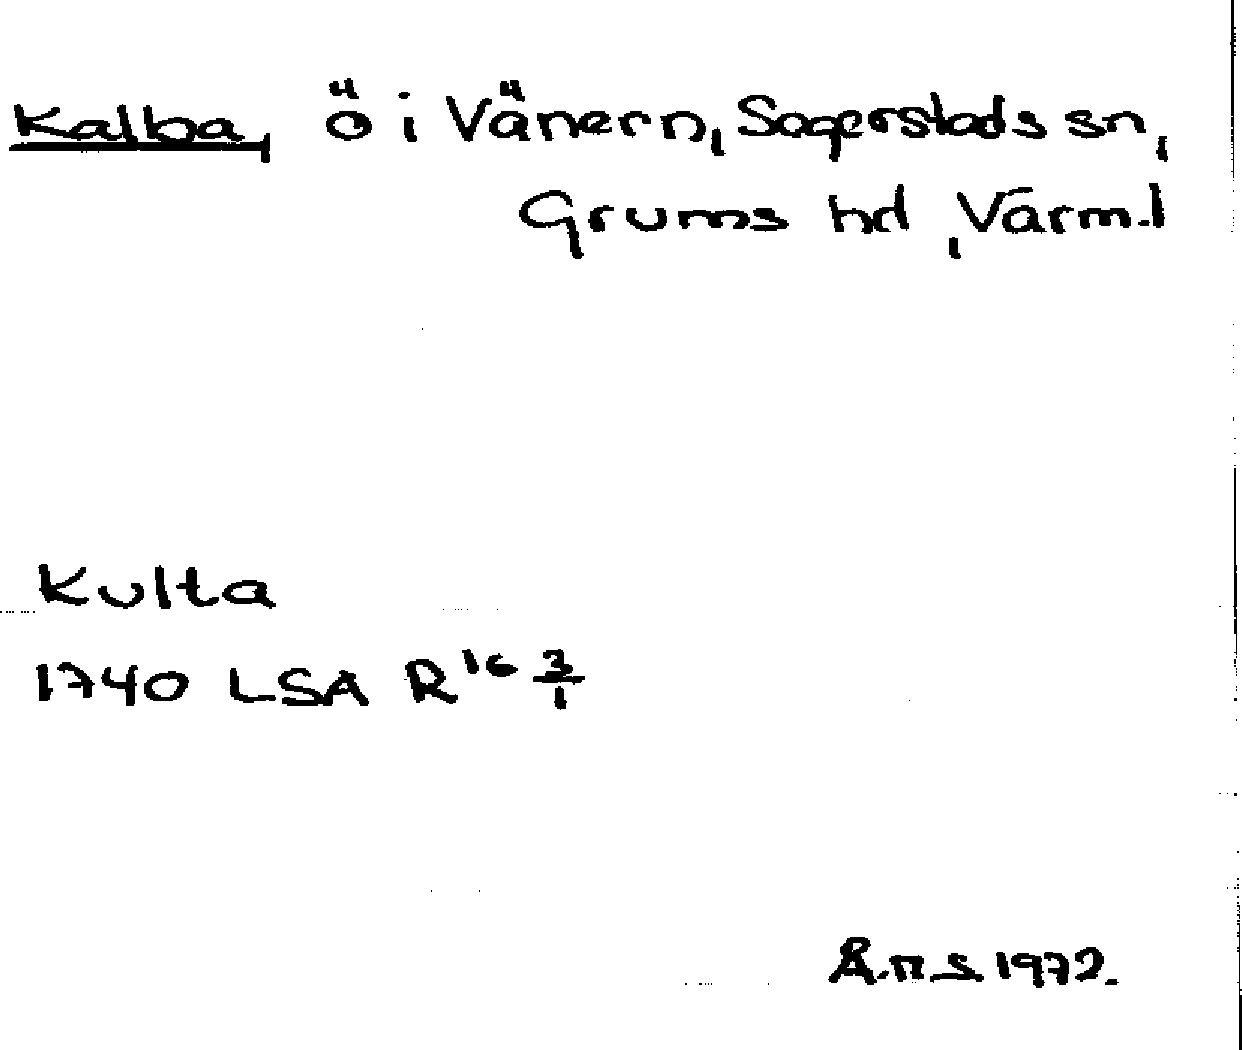 Kalba, ö i Vänern, Sagerstads sn,
Grums hd, Värml
Kulta
1740 LSA R16 3/1
Å.H.S. 1972.